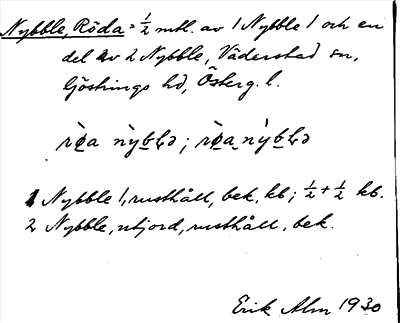 Nybble, Röda = 1/2 mtl. av 1 Nybble 1 och en
del av 2 Nybble, Väderstad sn,
Göstrings hd, Österg. l.
1 Nybble 1, rusthåll, bek, kb; 1/2 + 1/2 kb.
2 Nybble, utjord, rusthåll, bek.
Erik Alm 1930